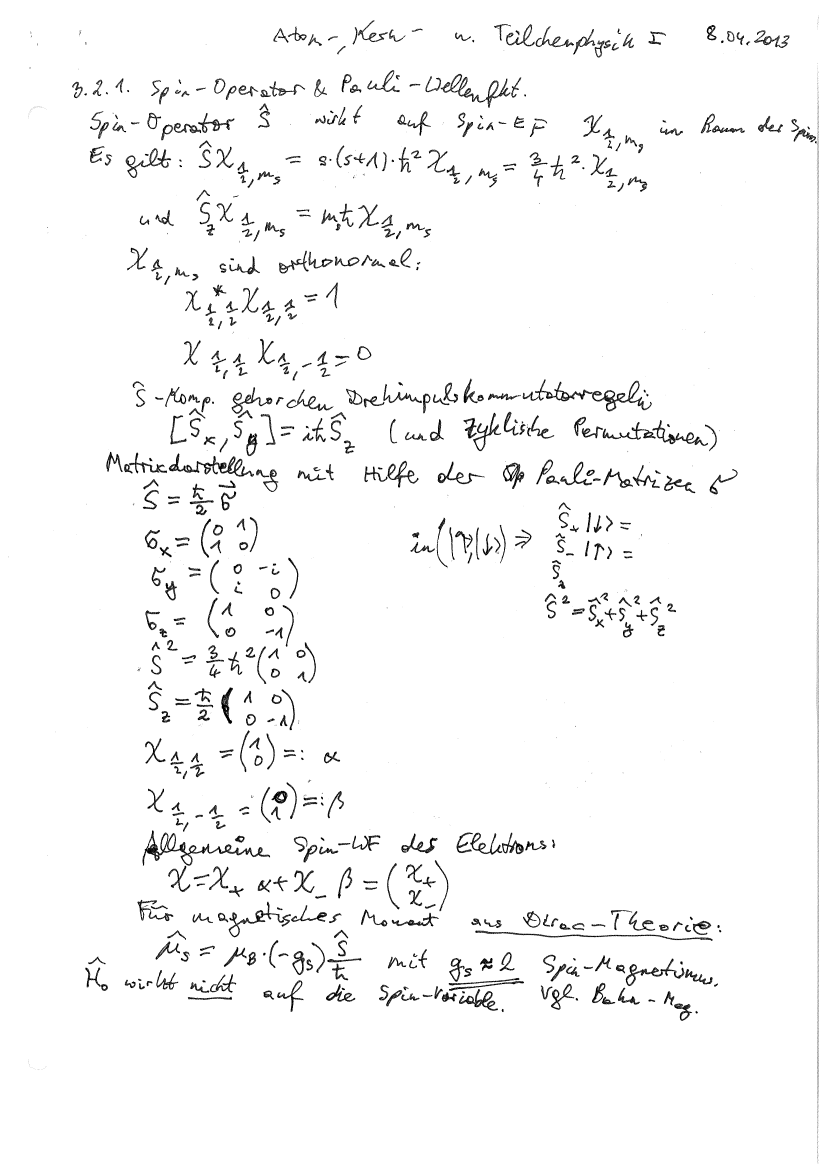 Atom-, Kern- u. Teilchenphysik I 8.04.2013
3.2.1. Spin-Operator & Pauli-Wellenfkt.
Spin-Operator Ŝ wirkt auf Spin-EF χ_{1/2,m_s} im Raum des Spins.
Es gilt: Ŝχ_{1/2,m_s} = s·(s+1)·ħ² χ_{1/2,m_s} = 3/4 ħ²·χ_{1/2,m_s}
und Ŝ_z χ_{1/2,m_s} = m_s ħ χ_{1/2,m_s}
χ_{1/2,m_s} sind orthonormal:
χ*_{1/2,1/2} χ_{1/2,1/2} = 1
χ_{1/2,1/2} χ_{1/2,-1/2} = 0
Ŝ-Komp. gehorchen Drehimpulskommutatorregeln
[Ŝ_x, Ŝ_y] = iħŜ_z (und zyklische Permutationen)
Matrixdarstellung mit Hilfe der Pauli-Matrizen σ
Ŝ = ħ/2 σ⃗
σ_x = (0 1; 1 0)
σ_y = (0 -i; i 0)
σ_z = (1 0; 0 -1)
Ŝ² = 3/4 ħ² (1 0; 0 1)
Ŝ_z = ħ/2 (1 0; 0 -1)
in (|↑⟩,|↓⟩) ⇒ Ŝ_+ |↓⟩ =
Ŝ_- |↑⟩ =
Ŝ_z
Ŝ² = Ŝ_x² + Ŝ_y² + Ŝ_z²
χ_{1/2,1/2} = (1; 0) =: α
χ_{1/2,-1/2} = (0; 1) =: β
Allgemeine Spin-WF des Elektrons:
χ = χ_+ α + χ_- β = (χ_+; χ_-)
Für magnetisches Moment aus Dirac-Theorie:
μ̂_s = μ_B·(-g_s) Ŝ/ħ mit g_s ≈ 2 Spin-Magnetismus.
Ĥ_0 wirkt nicht auf die Spin-Variable. Vgl. Bahn-Mag.